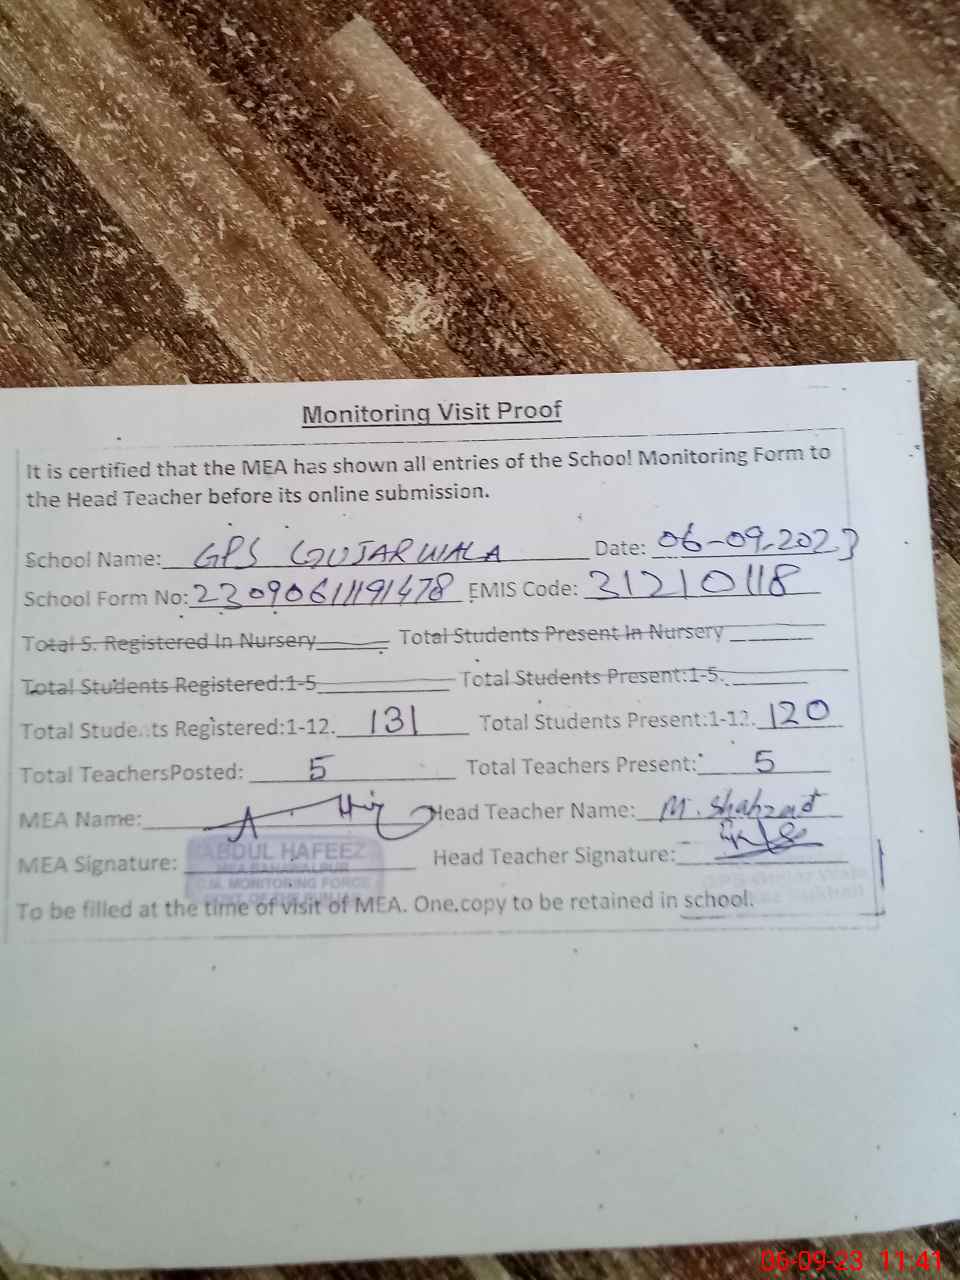 Monitoring Visit Proof
It is certified that the MEA has shown all entries of the School Monitoring Form to
the Head Teacher before its online submission.
School Name: GPS GUJARWALA Date: 06-09-2023
School Form No: 2309061191478 EMIS Code: 31210118
Total S. Registered In Nursery Total Students Present In Nursery
Total Students Registered:1-5 Total Students Present:1-5.
Total Students Registered:1-12. 131 Total Students Present:1-12. 120
Total TeachersPosted: 5 Total Teachers Present: 5
MEA Name: Head Teacher Name: M. Shahzad
MEA Signature: Head Teacher Signature:
ABDUL HAFEEZ
MEA BAHAWALPUR
C.M. MONITORING FORCE
To be filled at the time of visit of MEA. One copy to be retained in school.
06-09-23 11:41